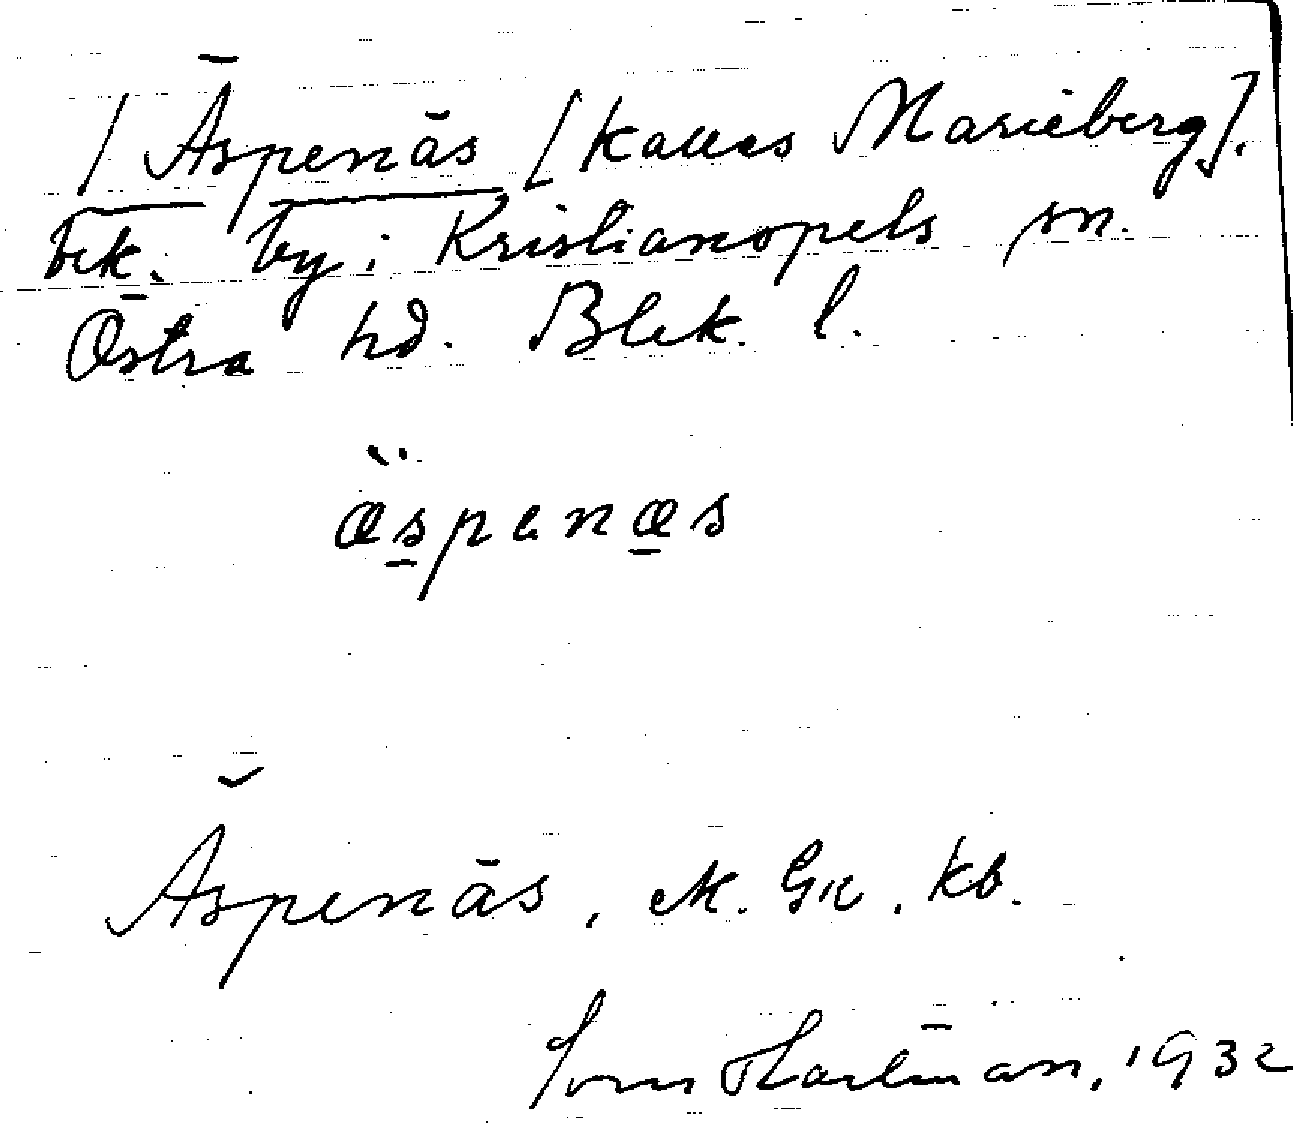 / Äspenäs [kallas Marieberg].
bek. by i Kristianopels sn.
Östra hd. Blek. l.
äspenæs
Äspenäs, ek. Gk. kb.
Hartman, 1932